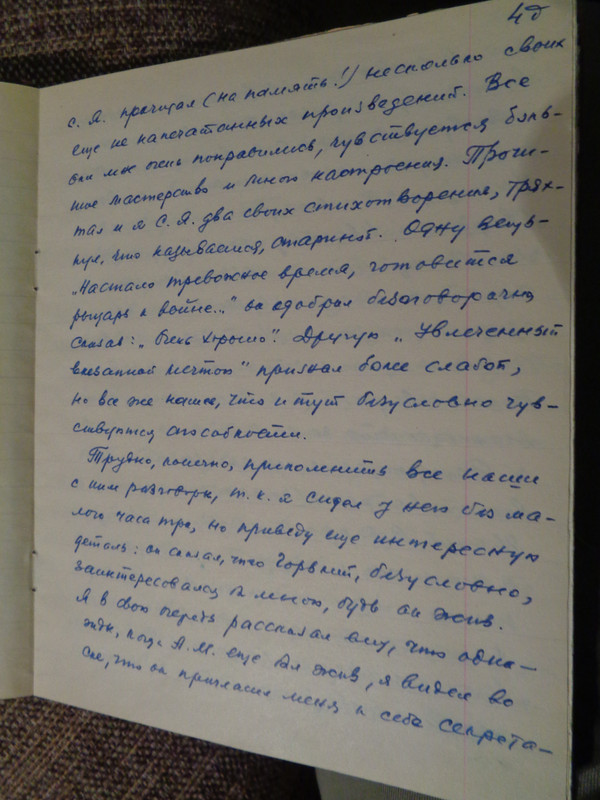 4д
С. Я. прочитал (на память!) несколько своих
еще не напечатанных произведений. Все
они мне очень понравились, чувствуется боль-
шое мастерство и много настроения. Прочи-
тал и я С. Я. два своих стихотворения, трях-
нул, что называется, стариной. Одну вещь
„Настало тревожное время, готовится
рыцарь к войне..." он одобрил безоговорочно,
сказав: „Очень хорошо". Другую „Увлеченный
внезапной мечтою" признал более слабой,
но все же нашел, что и тут безусловно чув-
ствуются способности.
Трудно, конечно, припомнить все наши
с ним разговоры, т. к. я сидел у него без ма-
лого часа три, но приведу еще интересную
деталь: он сказал, что Горький, безусловно,
заинтересовался бы мною, будь он жив.
Я в свою очередь рассказал ему, что одна-
жды, когда А. М. еще был жив, я видел во
сне, что он пригласил меня к себе секрета-